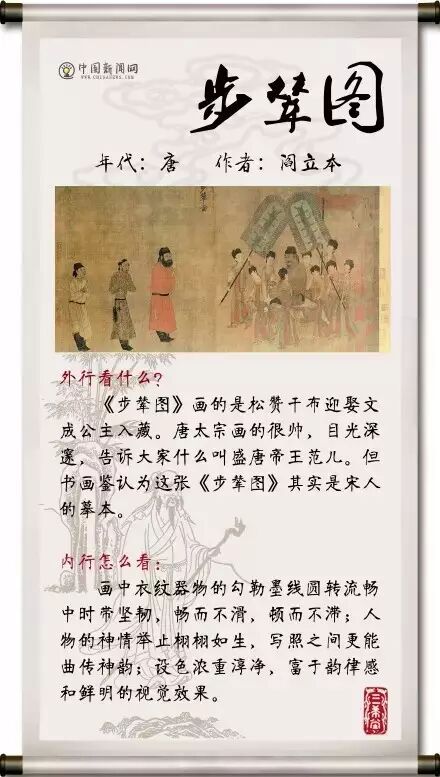 中国新闻网
WWW.CHINANEWS.COM
步辇图
年代：唐 作者：阎立本
步辇图
外行看什么？
《步辇图》画的是松赞干布迎娶文
成公主入藏。唐太宗画的很帅，目光深
邃，告诉大家什么叫盛唐帝王范儿。但
书画鉴认为这张《步辇图》其实是宋人
的摹本。
内行怎么看：
画中衣纹器物的勾勒墨线圆转流畅
中时带坚韧，畅而不滑，顿而不滞；人
物的神情举止栩栩如生，写照之间更能
曲传神韵；设色浓重淳净，富于韵律感
和鲜明的视觉效果。